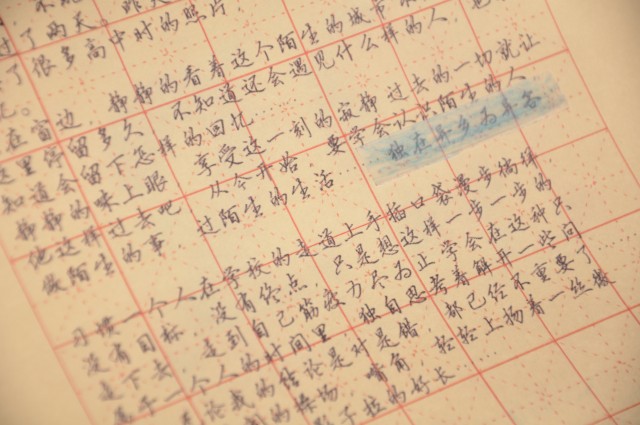 了很多高中时的照片,
忆。
在窗边, 静静的看着这个陌生的城市
这里停留多久 不知道还会遇见什么样的人, 也
知道会留下怎样的回忆
静静的眯上眼 享受这一刻的寂静 过去的一切就让
他这样过去吧 从今开始 要学会认识陌生的人
做陌生的事 过陌生的生活... 独在异乡为异客
习惯一个人在学校的走道上手插口袋漫步徜徉
没有目标 没有终点, 只是想这样一步一步的
走下去 走到自己筋疲力尽为止 学会在这种只
属于一个人的时间里 独自思考着解开一些问
论我的结论是对是错, 都已经不重要了
的操场 嘴角 轻轻上扬着一丝
影子拉的好长